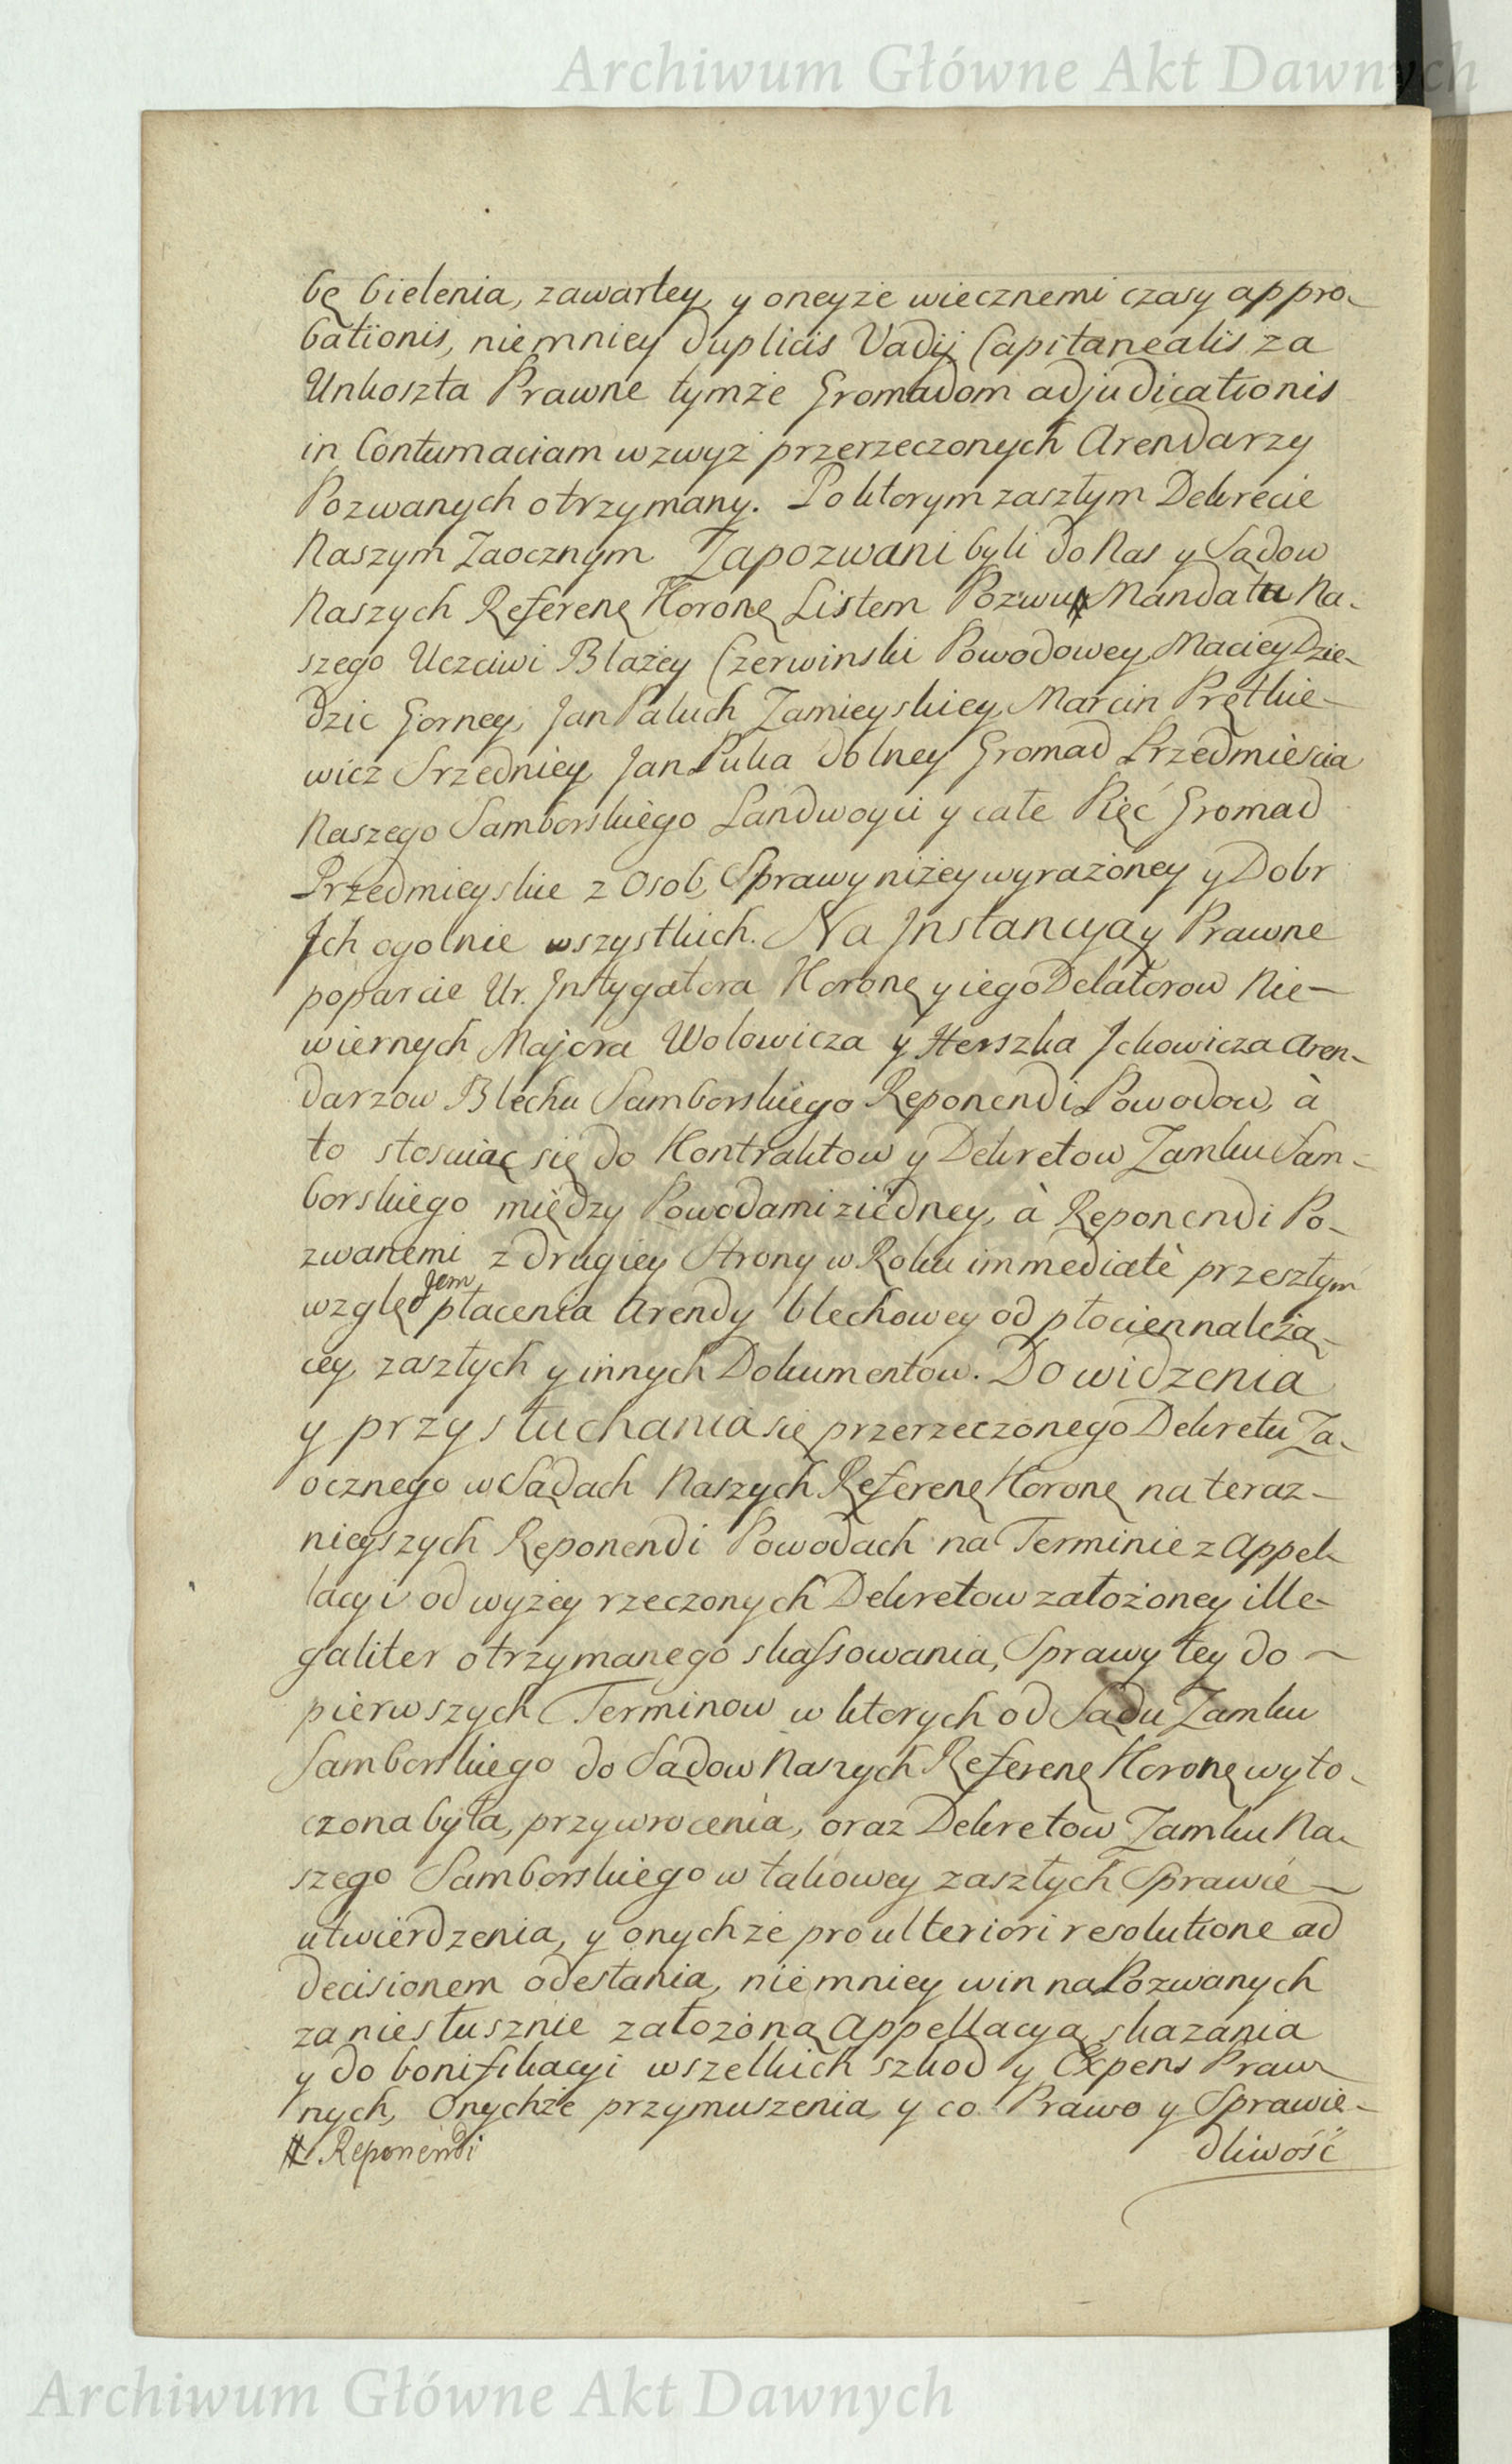 Archiwum Główne Akt Dawnych
bę bielenia, zawartey, y oneyże wiecznemi czasy appro-
bationis, niemniey duplicis Vadij Capitanealis za
Unkoszta Prawne tymże Gromadom adjudicationis
in Contumaciam wzwyż przerzeczonych Arendarzy
Pozwanych otrzymany. Po ktorym zaszłym Dekrecie
Naszym Zaocznym Zapozwani byli do Nas y Sądow
Naszych Referenę Koronę Listem Pozwu # Mandatu Na-
szego Uczciwi Błażey Czerwinski Powodowey, Maciey Dzie-
dzic Gorney, Jan Paluch Zamieyskiey, Marcin Prętkie-
wicz Srzedniey, Jan Puka dolney Gromad Przedmieścia
Naszego Samborskiego Landwoyci y całe Pięć Gromad
Przedmieyskie z Osob, Sprawy niżey wyrażoney y Dobr
Ich ogolnie wszystkich. Na Jnstancyą y Prawne
poparcie Ur. Jnstygatora Koronę y iego Delatorow Nie-
wiernych Majora Wolowicza y Herszka Jckowicza Aren-
darzow Blechu Samborskiego Reponendi Powodow, à
to stosuiąc się do Kontraktow y Dekretow Zamku Sam-
borskiego między Powodami z iedney, à Reponendi Po-
zwanemi z drugiey Strony w Roku immediatè przeszłym
względem płacenia Arendy blechowey od płocien należą-
cey, zaszłych y innych Dokumentow. Do widzenia
y przysłuchania się przerzeczonego Dekretu Za-
ocznego w Sądach Naszych Referenę Koronę na teraz-
nieyszych Reponendi Powodach na Terminie z Appel-
lacyi od wyżey rzeczonych Dekretow założoney ille-
galiter otrzymanego skassowania, Sprawy tey do
pierwszych Terminow w ktorych od Sądu Zamku
Samborskiego do Sądow Naszych Referenę Koronę wyto-
czona była, przywrocenia, oraz Dekretow Zamku Na-
szego Samborskiego w takowey zaszłych Sprawie
utwierdzenia, y onychże pro ulteriori resolutione ad
decisionem odesłania, niemniey win na Pozwanych
za niesłusznie założoną Appellacyą skazania
y do bonifikacyi wszelkich szkod y Expens Praw-
nych, Onychże przymuszenia, y co Prawo y Sprawie-
# Reponendi dliwość
Archiwum Główne Akt Dawnych